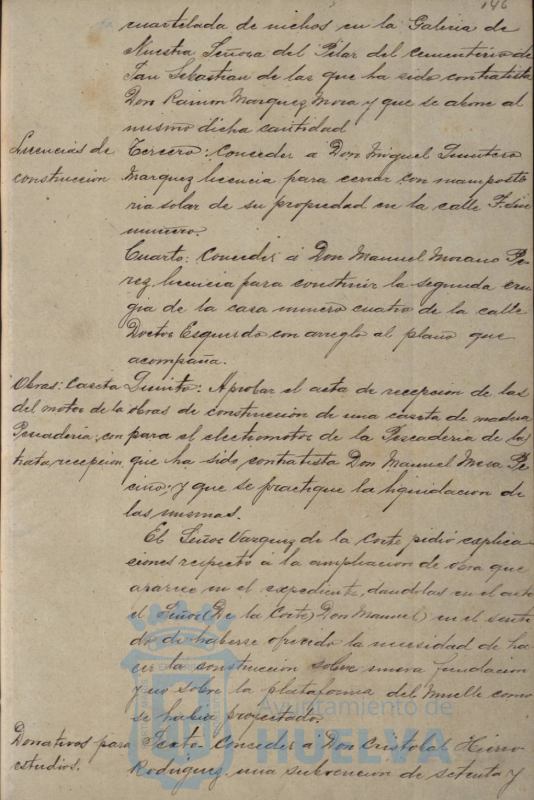 146
cuartelada de nichos en la Galeria de
Nuestra Señora del Pilar del cementerio de
San Sebastian de las que ha sido contratista
Don Ramon Marquez Mora y que se abone al
mismo dicha cantidad
Licencias de
construccion
Tercero: Conceder a Don Miguel Quintero
Marquez licencia para cerrar con mamposte
ria solar de su propiedad en la calle F. sin
numero.
Cuarto: Conceder á Don Manuel Morano Pe
rez, licencia para construir la segunda cru
gia de la casa numero cuatro de la calle
Doctor Esquerdo con arreglo al plano que
acompaña.
Obras: Caseta
del motor de la
Pescaderia, con
trata, recepcion
Quinto: Aprobar el acta de recepcion de las
obras de construccion de una caseta de madera
para el electromotor de la Pescaderia de las
que ha sido contratista Don Manuel Mesa Pe
ciño; y que se practique la liquidacion de
las mismas.
El Señor Vazquez de la Corte pidió explica
ciones respecto á la ampliacion de obra que
aparece en el expediente, dandolas en el acto
el Señor (De la Corte) Don Manuel) en el senti
do de haberse ofrecido la necesidad de ha
cer la construccion sobre nueva fundacion
y no sobre la plataforma del Muelle como
se habia proyectado.
Donativos para
estudios.
Sexto. Conceder a Don Cristobal Hierro
Rodriguez, una subvencion de setenta y
Ayuntamiento de
HUELVA